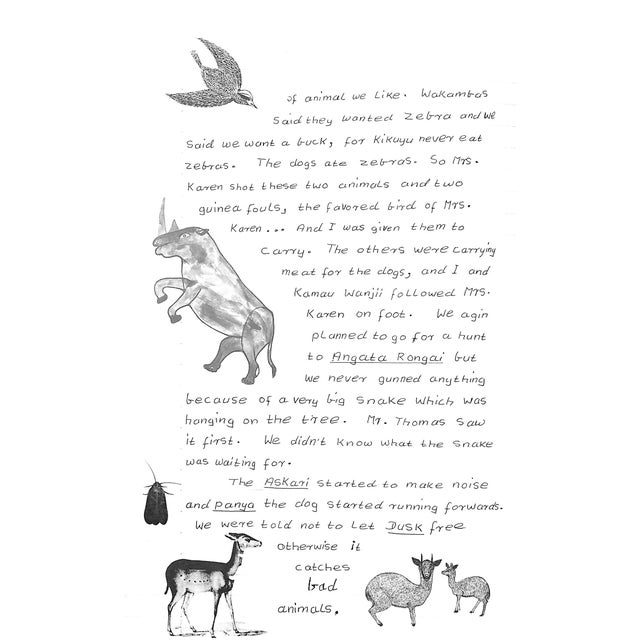 of animal we like. Wakambas
said they wanted zebra and we
said we want a buck, for Kikuyu never eat
zebras. The dogs ate zebras. So Mrs.
Karen shot these two animals and two
guinea fouls, the favored bird of Mrs.
Karen... And I was given them to
carry. The others were carrying
meat for the dogs, and I and
Kamau Wanjii followed Mrs.
Karen on foot. We agin
planned to go for a hunt
to Angata Rongai but
we never gunned anything
because of a very big snake which was
hanging on the tree. Mr. Thomas saw
it first. We didn't know what the snake
was waiting for.
The Askari started to make noise
and panya the dog started running forwards.
We were told not to let Dusk free
otherwise it
catches
bad
animals.